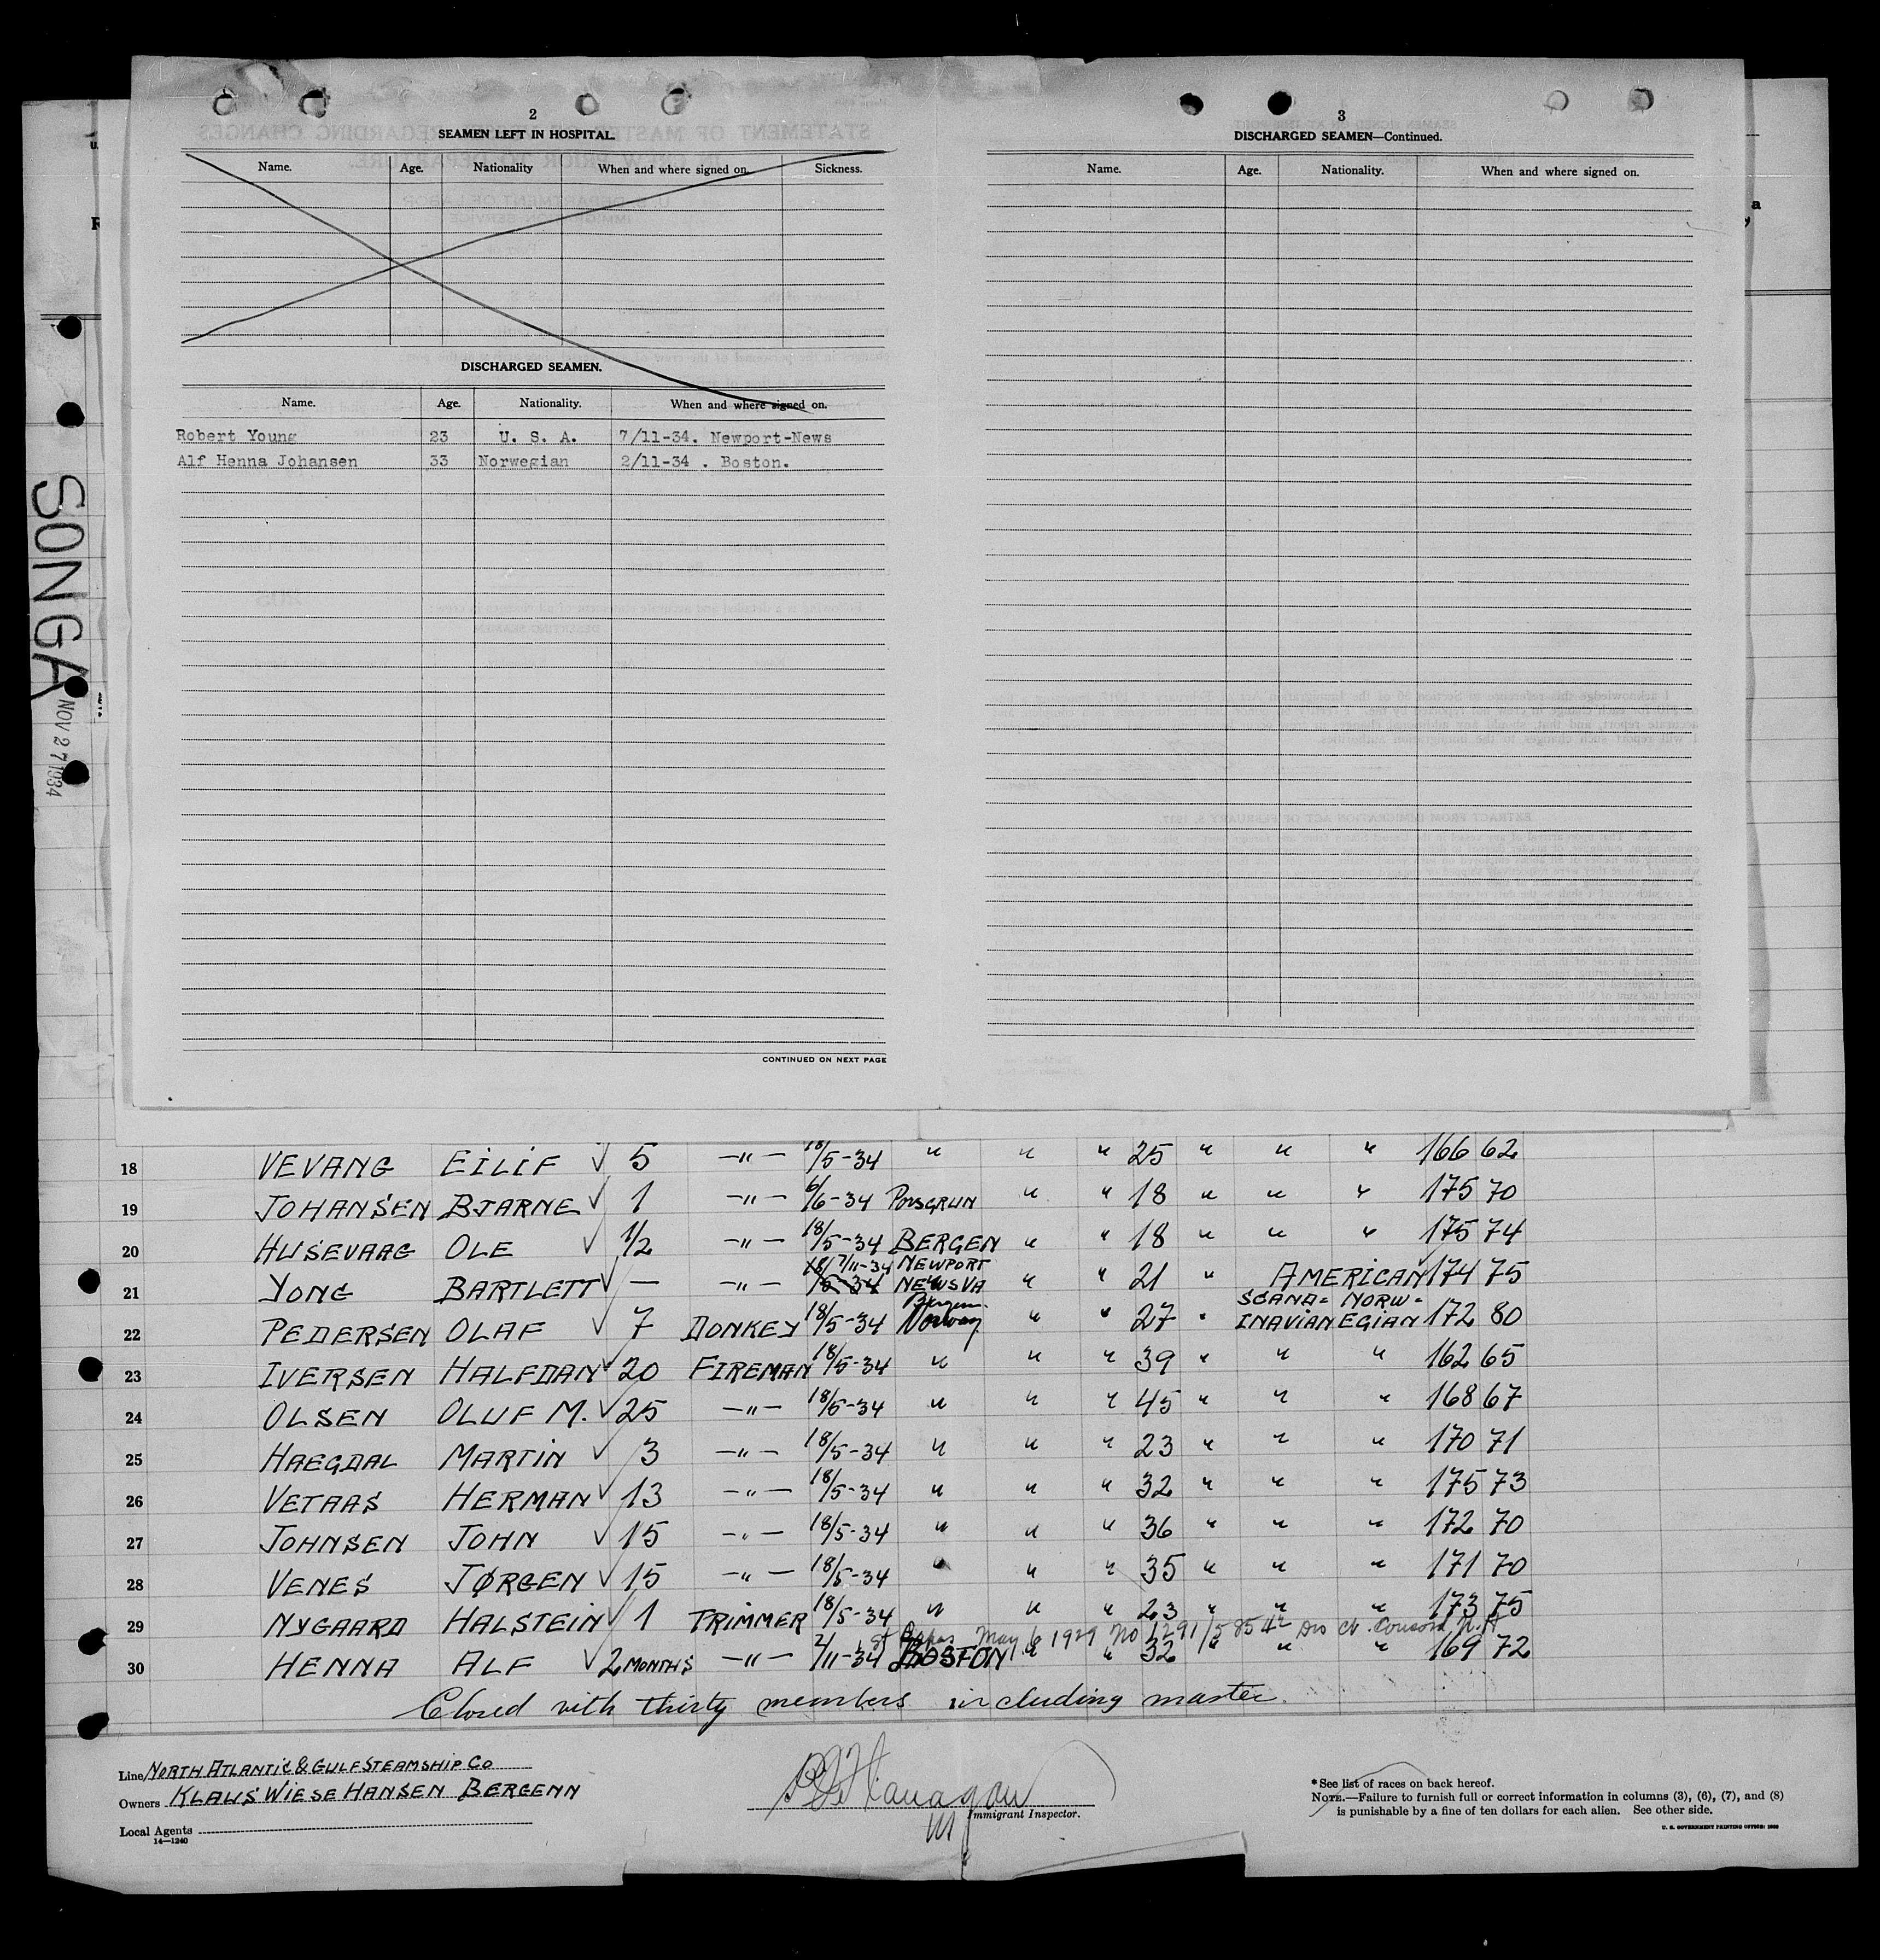 2
SEAMEN LEFT IN HOSPITAL.
Name. Age. Nationality When and where signed on. Sickness.
DISCHARGED SEAMEN.
Name. Age. Nationality. When and where signed on.
Robert Young 23 U. S. A. 7/11-34. Newport-News
Alf Henna Johansen 33 Norwegian 2/11-34 . Boston.
CONTINUED ON NEXT PAGE
3
DISCHARGED SEAMEN—Continued.
Name. Age. Nationality. When and where signed on.
SONGA
NOV 27 1934
18 VEVANG EILIF √ 5 —"— 18/5-34 " " " 25 " " " 166 62
19 JOHANSEN BJARNE √ 1 —"— 6/6-34 PORSGRUN " " 18 " " " 175 70
20 HUSEVAAG OLE √ 1/2 —"— 18/5-34 BERGEN " " 18 " " " 175 74
21 YONG BARTLETT √ — —"— 18/5-34 7/11-34 NEWPORT NEWS VA " " 21 " AMERICAN 174 75
22 PEDERSEN OLAF √ 7 DONKEY 18/5-34 Bergen Norway " " 27 " SCAND=INAVIAN NORW=EGIAN 172 80
23 IVERSEN HALFDAN √ 20 FIREMAN 18/5-34 " " " 39 " " " 162 65
24 OLSEN OLUF M. √ 25 —"— 18/5-34 " " " 45 " " " 168 67
25 HAEGDAL MARTIN √ 3 —"— 18/5-34 " " " 23 " " " 170 71
26 VETAAS HERMAN √ 13 —"— 18/5-34 " " " 32 " " " 175 73
27 JOHNSEN JOHN √ 15 —"— 18/5-34 " " " 36 " " " 172 70
28 VENES JØRGEN √ 15 —"— 18/5-34 " " " 35 " " " 171 70
29 NYGAARD HALSTEIN √ 1 TRIMMER 18/5-34 " " " 23 " " " 173 75
May 6 1929 No 1291/58542 Dis Ct. Concord N.H
30 HENNA ALF √ 2 MONTHS —"— 2/11-34 BOSTON " " 32 " " " 169 72
Closed with thirty members including master.
Line NORTH ATLANTIC & GULF STEAMSHIP CO
Owners KLAUS WIESE HANSEN BERGENN
Local Agents
14—1240
Immigrant Inspector.
* See list of races on back hereof.
NOTE.—Failure to furnish full or correct information in columns (3), (6), (7), and (8)
is punishable by a fine of ten dollars for each alien. See other side.